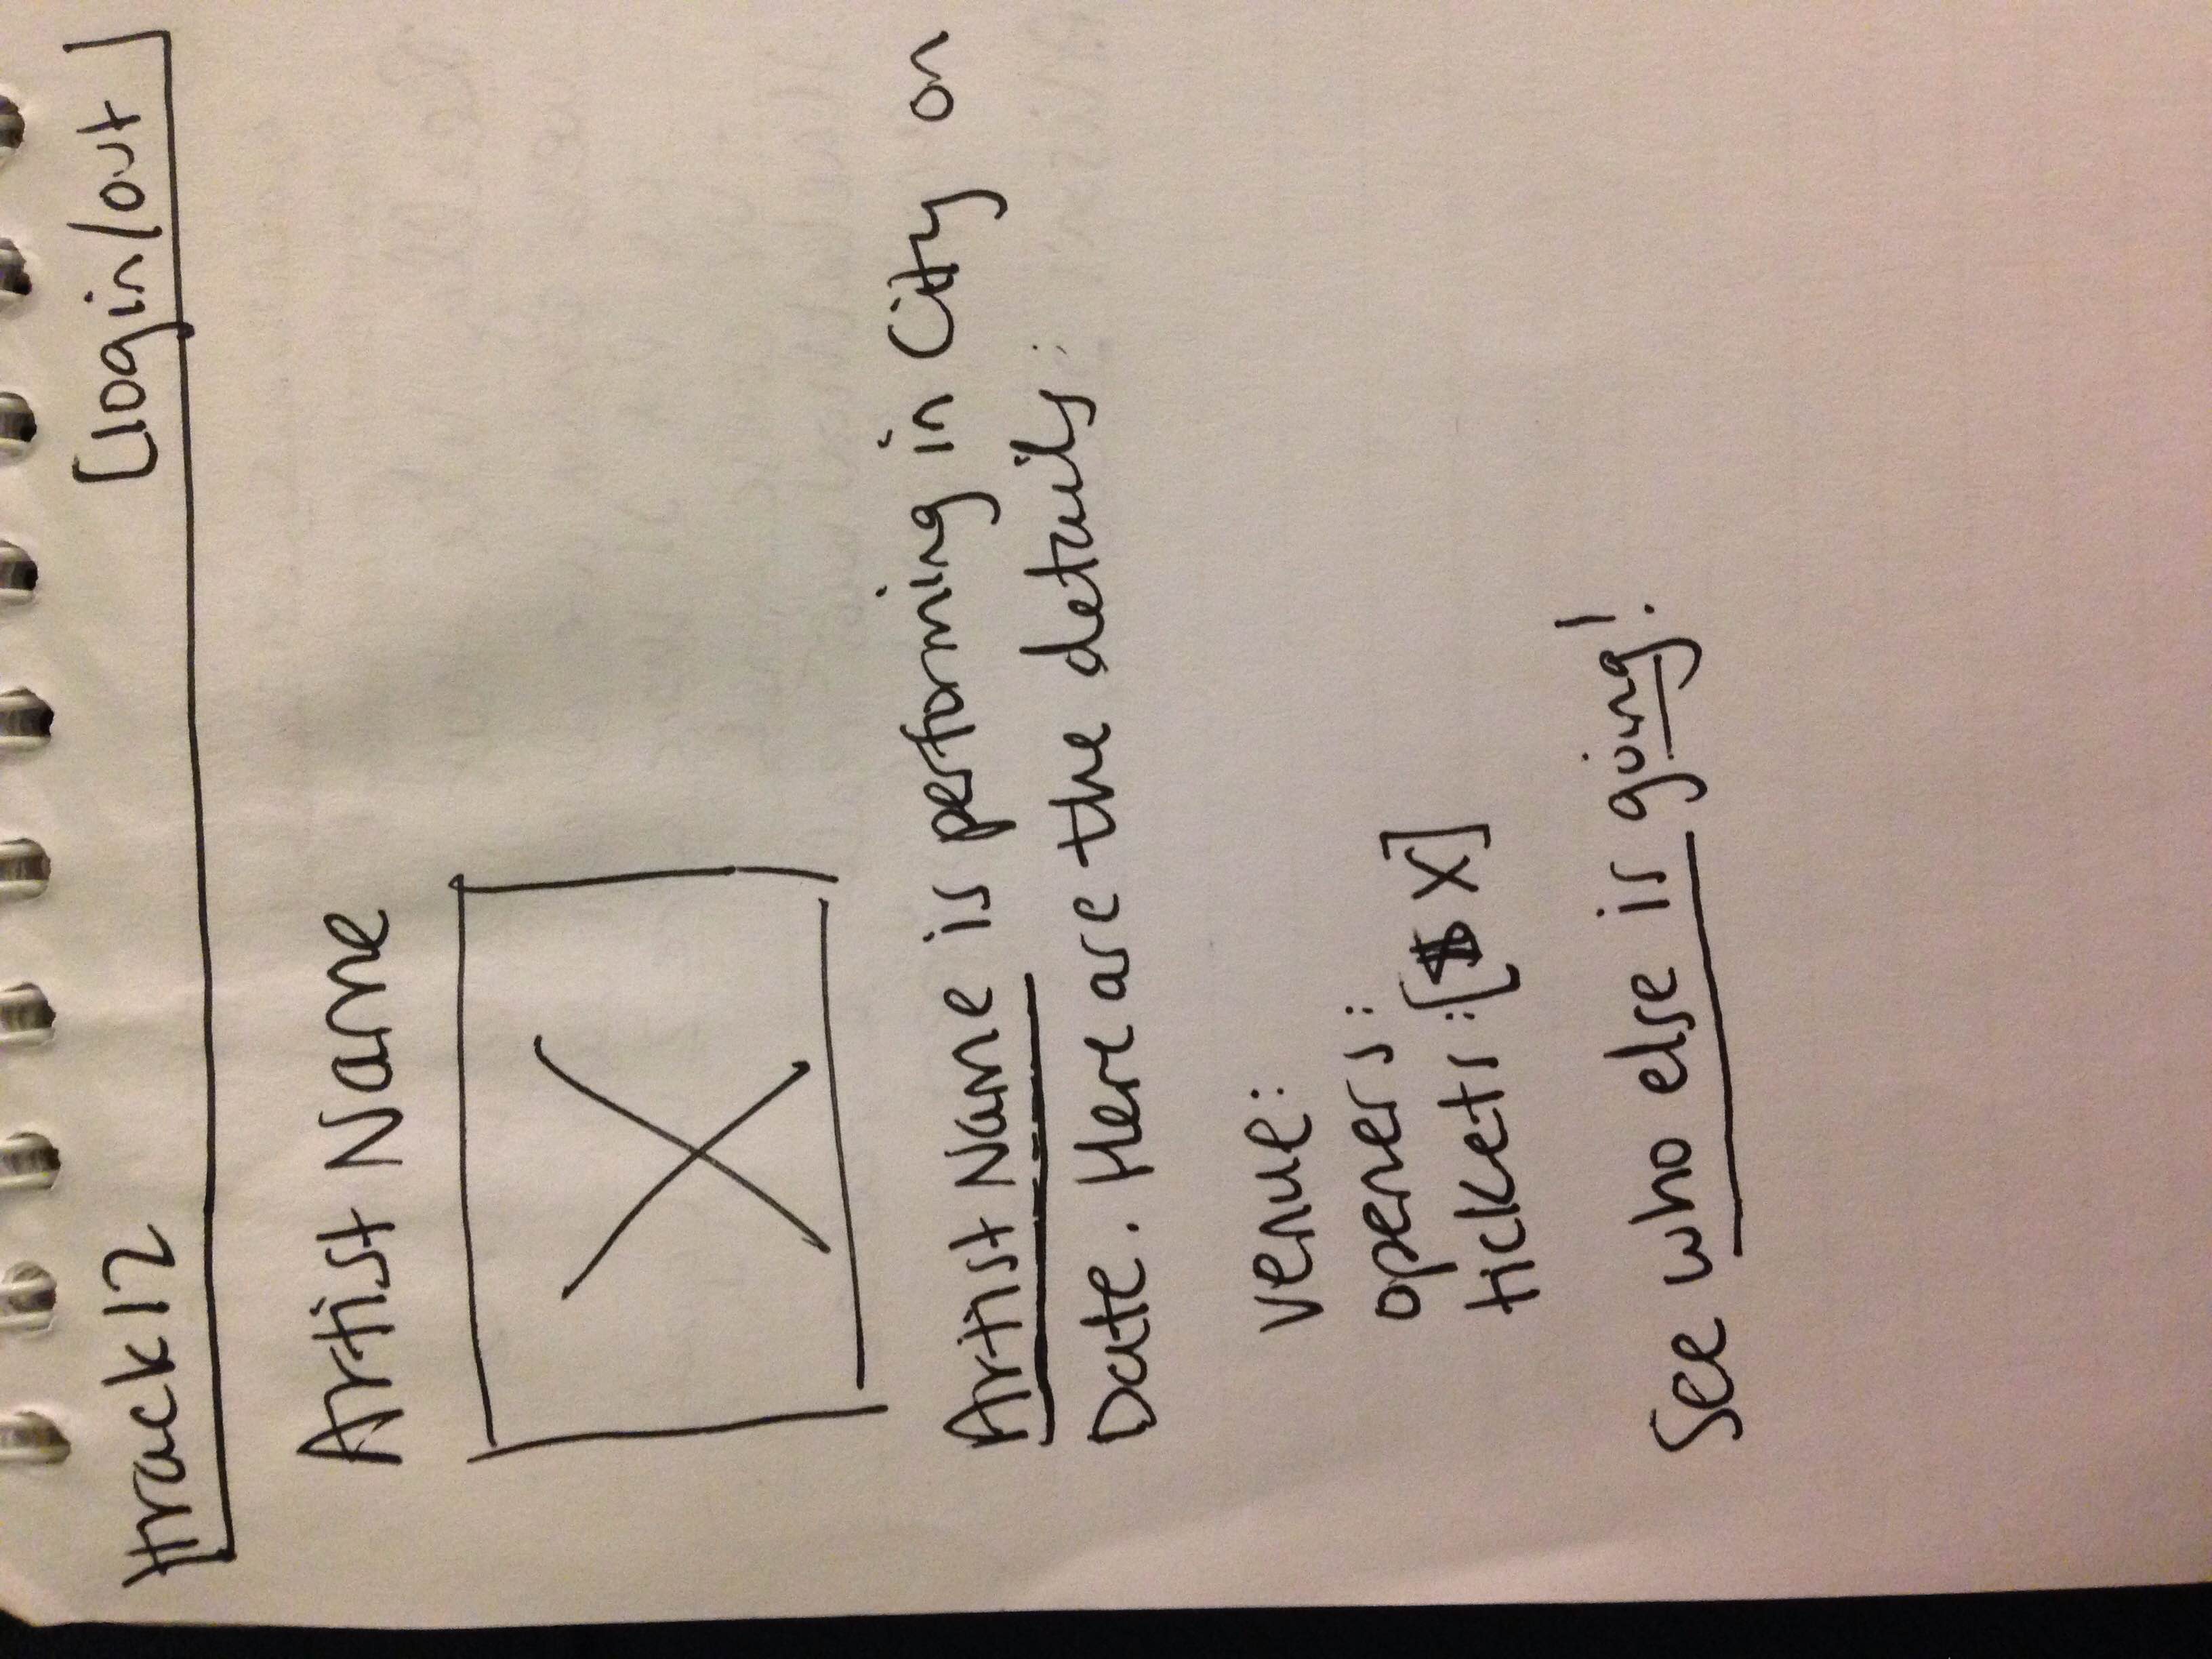 track12 [login/out]
Artist Name
Artist Name is performing in City on
Date. Here are the details:
venue:
openers:
tickets: [$ X]
See who else is going!